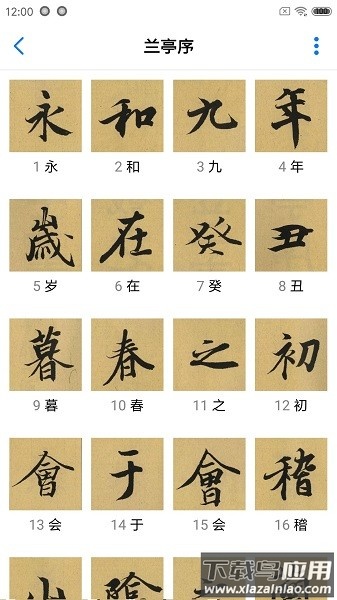 12:00
兰亭序
永 和 九 年
1 永 2 和 3 九 4 年
歳 在 癸 丑
5 岁 6 在 7 癸 8 丑
暮 春 之 初
9 暮 10 春 11 之 12 初
會 于 會 稽
13 会 14 于 15 会 16 稽
山 陰
下载鸟应用
www.xiazainiao.com